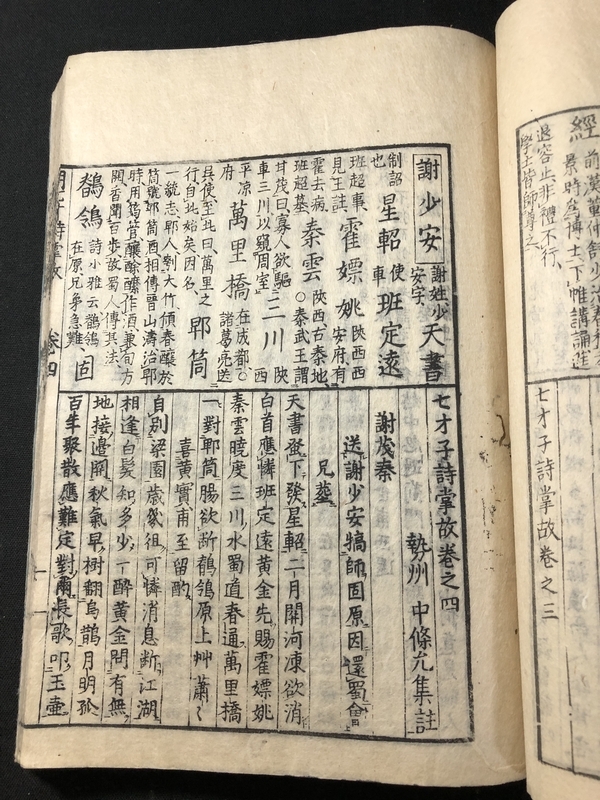 經
前漢董仲舒少治春
景時為博士下帷講誦進
退容止非禮不行
學士皆師尊之
七才子詩掌故卷之三
謝少安 謝姓少安字 天書
制詔也 星軺 使車 班定遠
班超事見王註 霍嫖姚 陝西西安府有
霍去病班超墓 秦雲 陝西古秦地○秦武王謂
甘茂曰寡人欲驅車三川以窺周室 三川 陝西
平凉府 萬里橋 在成都○諸葛亮送
吳使至此曰萬里之行自此始矣因名 郫筒
一統志郫人刳大竹傾春釀於筒號郫筒酒相傳晉山濤治郫
時用筠管釀酴醿作酒兼旬方開香聞百步故蜀人傳其法
鶺鴒 詩小雅云鶺鴒在原兄弟急難 固
七才子詩掌故卷之四
勢州 中條允集註
謝茂秦
送謝少安犒師固原因還蜀會
兄葬
天書蚤下發星軺二月關河凍欲消
白首應憐班定遠黃金先賜霍嫖姚
秦雲曉度三川水蜀道春通萬里橋
一對郫筒腸欲斷鶺鴒原上艸蕭〻
喜黃實甫至留酌
自別梁園歲幾徂可憐消息斷江湖
相逢白髮知多少一醉黃金問有無
地接邊關秋氣早樹翻烏鵲月明孤
百年聚散應難定對爾長歌叩玉壺
子詩掌故 卷四